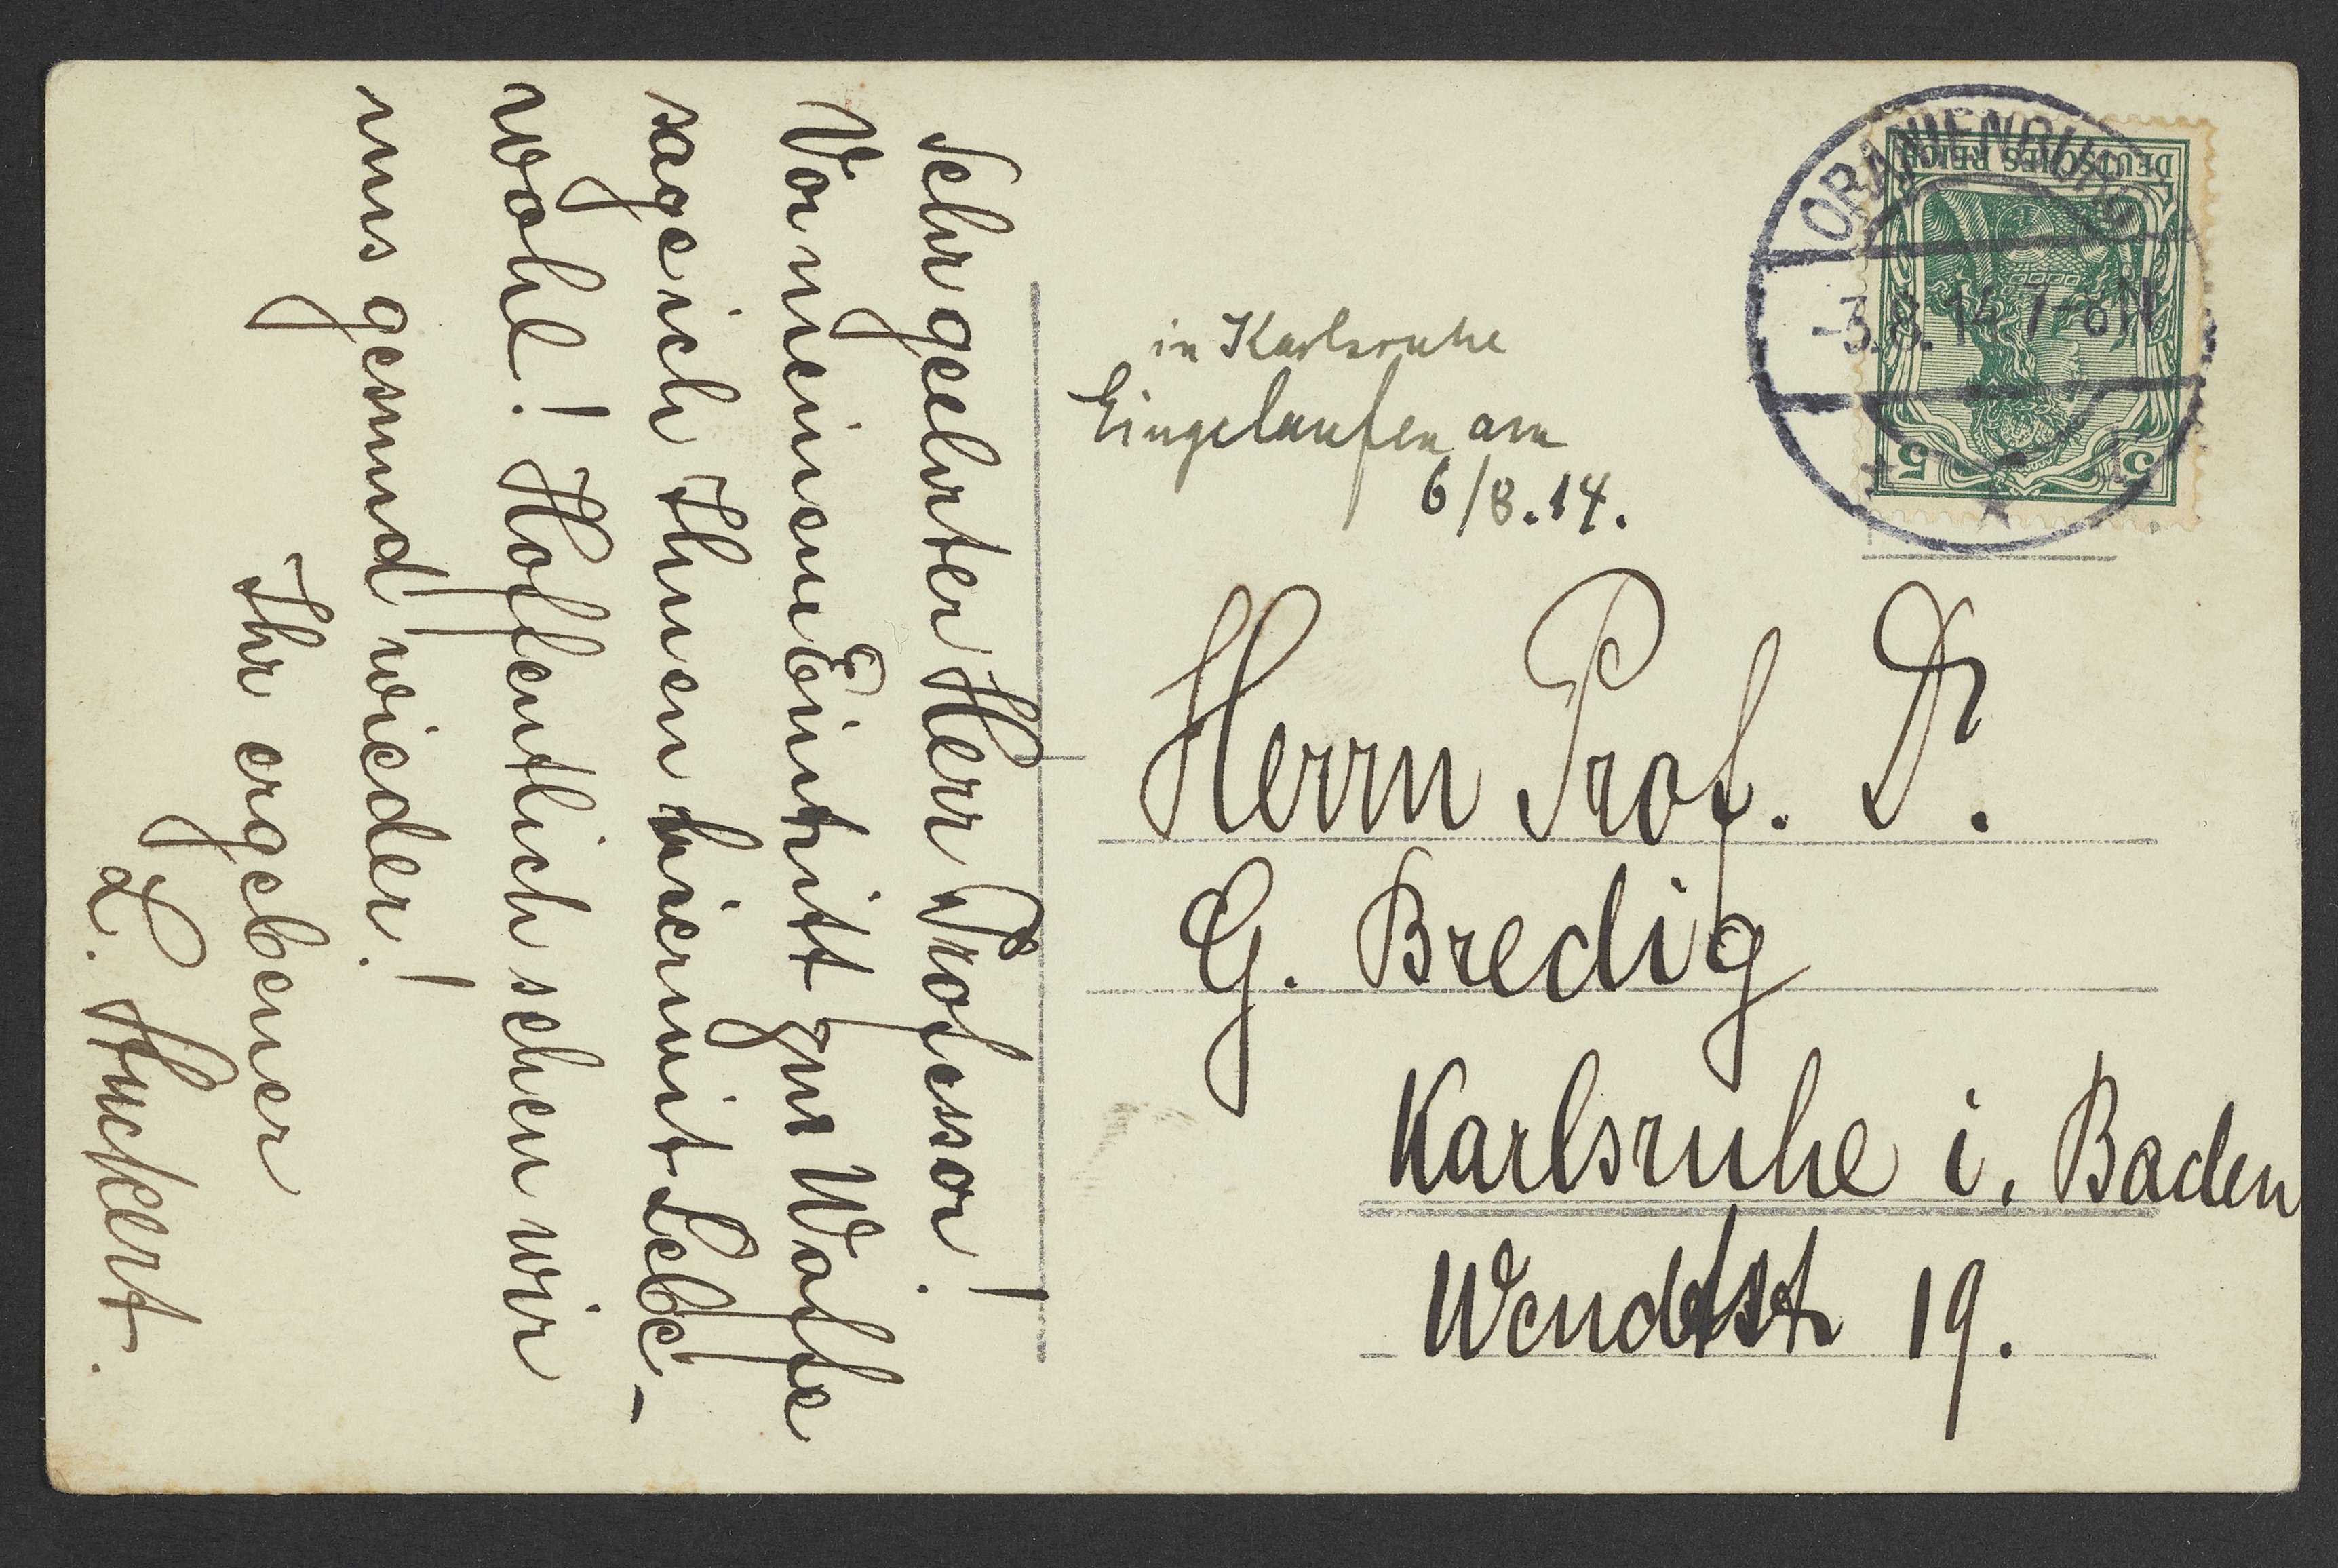 Sehr geehrter Herr Professor!
Vor meinem Eintritt zur Waffe
sage ich Ihnen hiermit Lebe-
wohl! Hoffentlich sehen wir
uns gesund wieder!
Ihr ergebener
L. Huckert.
in Karlsruhe
Eingelaufen am
6/8.14.
ORANIENBURG
-3.8.14.7-8N
DEUTSCHES REICH
5 5
Herrn Prof. Dr.
G. Bredig
Karlsruhe i. Baden
Wendtstr 19.